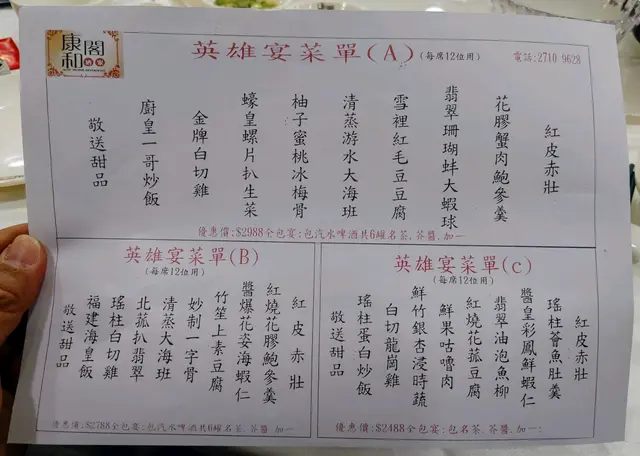 康和閣
英雄宴菜單(A)(每席12位用)
電話:2710 9628
紅皮赤壯
花膠蟹肉鮑參羹
翡翠珊瑚蚌大蝦球
雪裡紅毛豆豆腐
清蒸游水大海班
柚子蜜桃冰梅骨
蠔皇螺片扒生菜
金牌白切雞
廚皇一哥炒飯
敬送甜品
優惠價:$2988全包宴:包汽水啤酒共6罐名茶.芥醬.加一
英雄宴菜單(B)
(每席12位用)
紅皮赤壯
紅燒花膠鮑參羹
醬爆花姿海蝦仁
竹笙上素豆腐
妙制一字骨
清蒸大海班
北菰扒翡翠
瑤柱白切雞
福建海皇飯
敬送甜品
優惠價:$2788全包宴:包汽水啤酒共6罐名茶.芥醬.加一
英雄宴菜單(c)
(每席12位用)
紅皮赤壯
瑤柱薈魚肚羹
醬皇彩鳳鮮蝦仁
翡翠油泡魚柳
紅燒花菰豆腐
鮮果咕嚕肉
鮮竹銀杏浸時蔬
白切龍崗雞
瑤柱蛋白炒飯
敬送甜品
優惠價:$2488全包宴:包名茶.芥醬.加一: